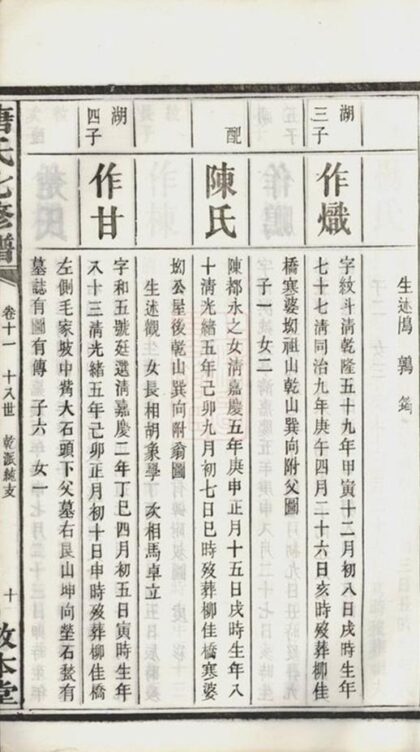 生述鳲 鶉 鴻
湖
三子
作熾
字紋斗清乾隆五十九年甲寅十二月初八日戌時生年
七十七清同治九年庚午四月二十六日亥時歿葬柳佳
橋寒婆坳祖山乾山巽向附父圖
子一 女二
配
陳氏
陳都永之女清嘉慶五年庚申正月十五日戌時生年八
十清光緒五年己卯九月初七日巳時歿葬柳佳橋寒婆
坳公屋後乾山巽向附翁圖
生述觀 生女長相胡業學 次相馬卓立
湖
四子
作甘
字和五號廷選清嘉慶二年丁巳四月初五日寅時生年
八十三清光緒五年己卯正月初十日申時歿葬柳佳橋
左側毛家坡中嘴大石頭下父墓右艮山坤向塋石墊有
墓誌有圖有傳 子六 女一
唐氏七修譜
卷十一 十八世 乾派純支
十 敬本堂